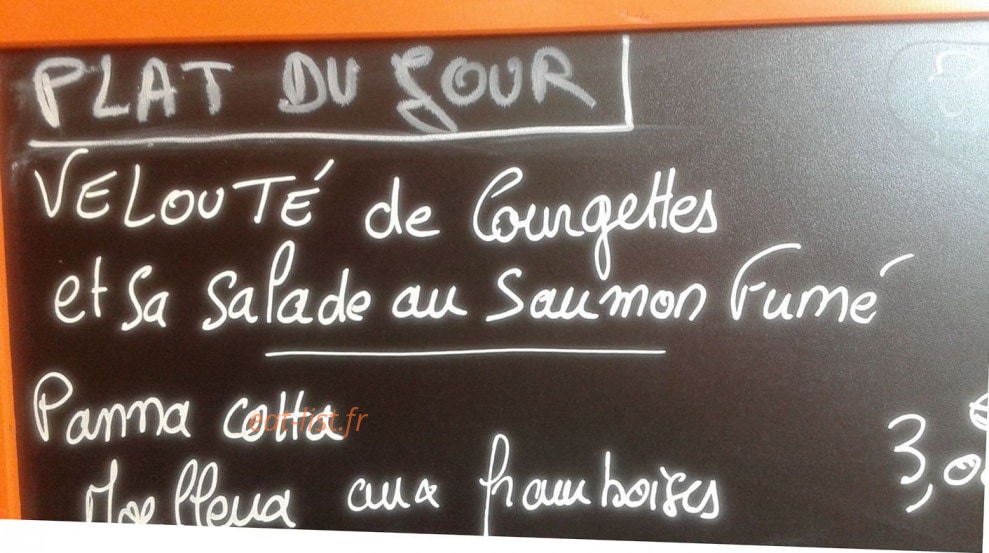 PLAT DU JOUR
VELOUTÉ de Courgettes
et sa salade au Saumon Fumé
Panna cotta
eat-list.fr
3,00
Moelleux aux framboises